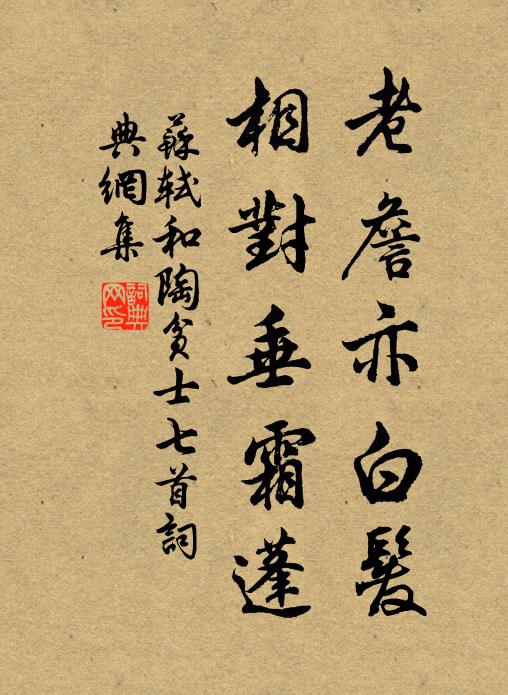 老詹亦白髮
相對垂霜蓬
蘇軾和陶貧士七首詞
典網集
詞典
网印